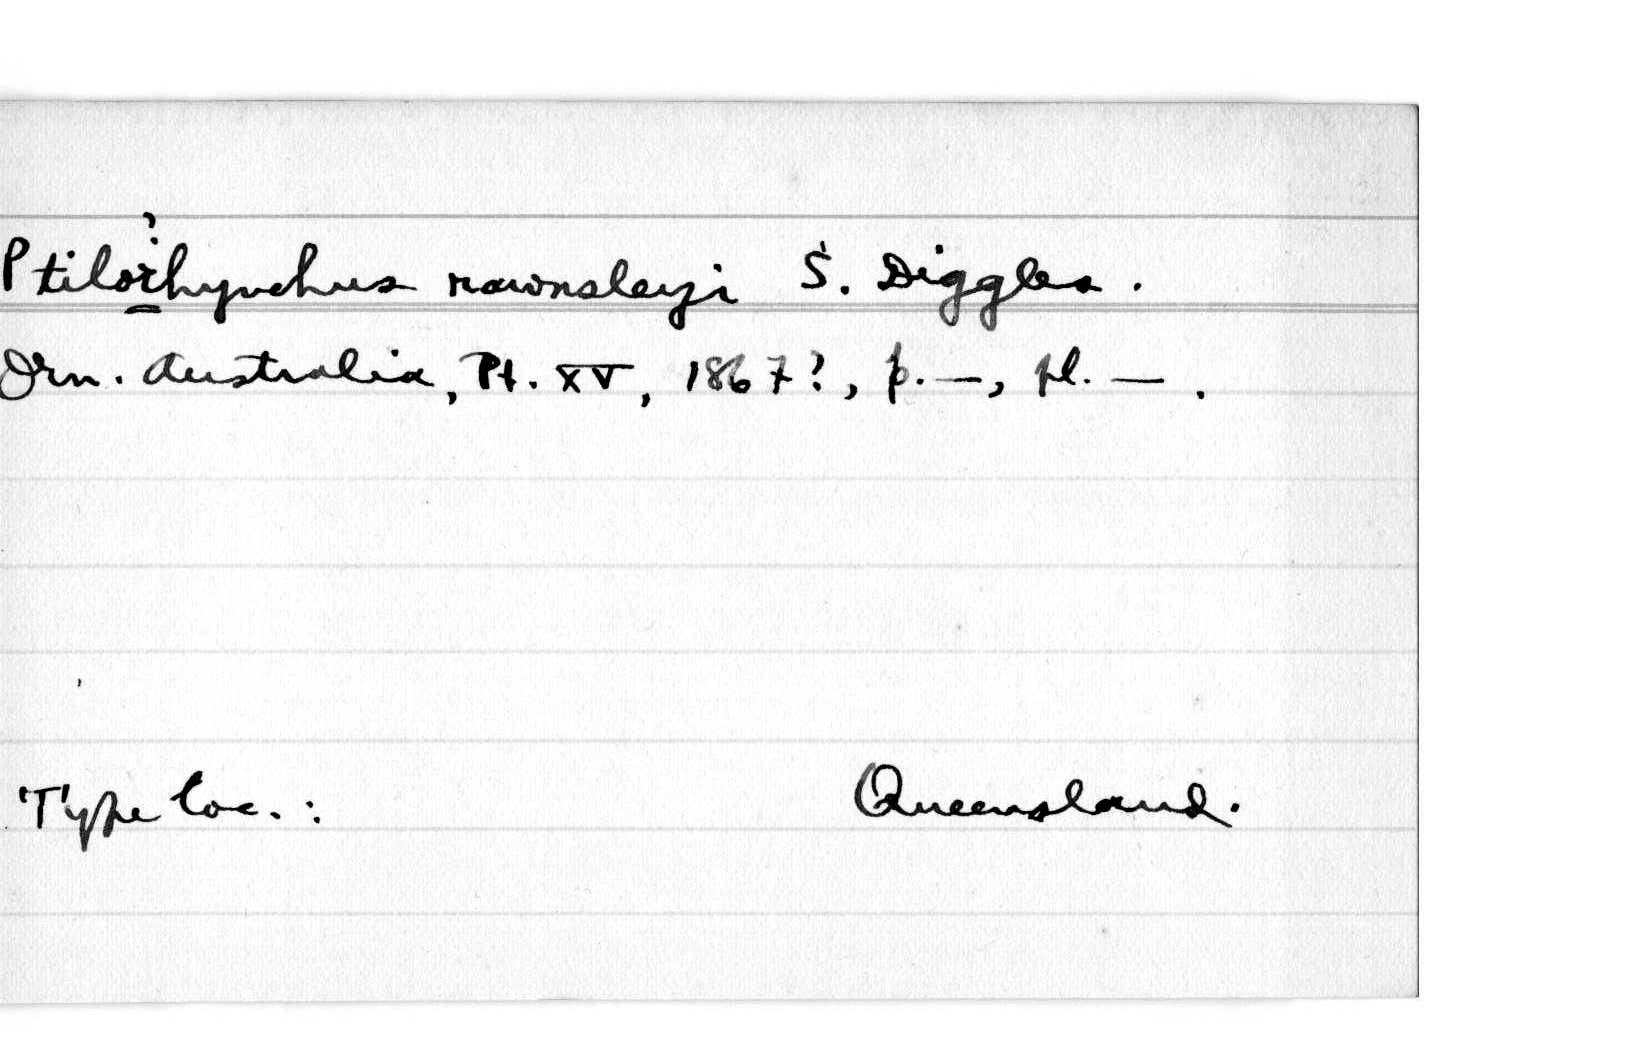 ?
Ptilorhynchus rawnsleyi S. Diggles.
Orn. Australia, Pt. XV, 1867?, p. —, pl. — .
Type loc. : Queensland.